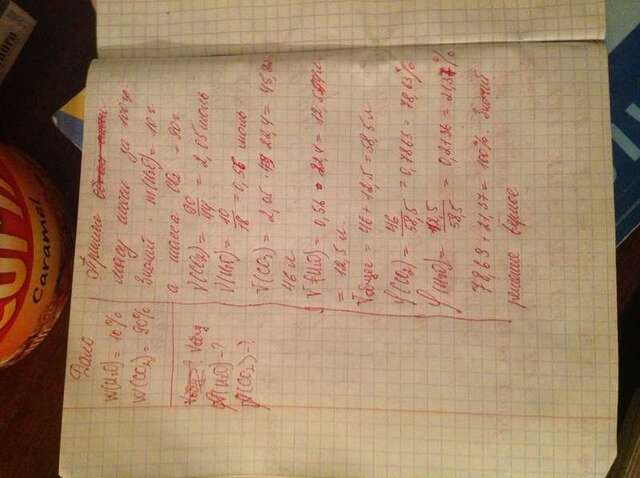 Дано
W(H₂O) = 10%
W(CO₂) = 90%
Vобщ
φ(H₂O)-?
φ(CO₂)-?
Примем
массу смеси за 100гр
Значит, m(H₂O) = 10г
а масса CO₂ = 90г
V(CO₂) = 90/44 = 2,05 моль
V(H₂O) = 10/18 = 0,56 моль
V(CO₂) = 2,05 22,4 =
46 л
V(H₂O) = 0,56 · 22,4 =
= 12,5 л
Vобщ = 46 + 12,5 = 58,5 л
φ(CO₂) = 46/58,5 = 0,7863 = 78,63%
φ(H₂O) = 12,5/58,5 = 0,2136 = 21,37%
78,63 + 21,37 = 100% Значит
решение верное
Caramel